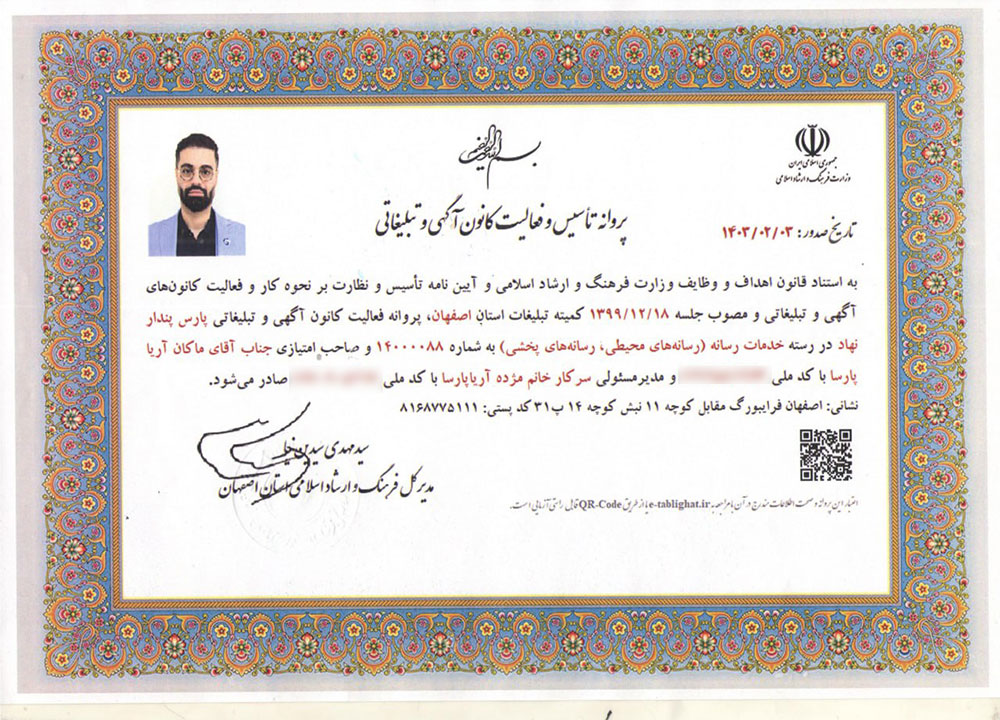 بسم الله الرحمن الرحیم
جمهوری اسلامی ایران
وزارت فرهنگ و ارشاد اسلامی
پروانه تأسیس و فعالیت کانون آگهی و تبلیغاتی
تاریخ صدور: ۱۴۰۳/۰۲/۰۳
به استناد قانون اهداف و وظایف وزارت فرهنگ و ارشاد اسلامی و آیین نامه تأسیس و نظارت بر نحوه کار و فعالیت کانون‌های
آگهی و تبلیغاتی و مصوب جلسه ۱۳۹۹/۱۲/۱۸ کمیته تبلیغات استان اصفهان، پروانه فعالیت کانون آگهی و تبلیغاتی پارس پندار
نهاد در رسته خدمات رسانه (رسانه‌های محیطی، رسانه‌های پخشی) به شماره ۱۴۰۰۰۰۸۸ و صاحب امتیازی جناب آقای ماکان آریا
پارسا با کد ملی و مدیرمسئولی سرکار خانم مژده آریاپارسا با کد ملی صادر می‌شود.
نشانی: اصفهان فرایبورگ مقابل کوچه ۱۱ نبش کوچه ۱۴ پ۳۱ کد پستی: ۸۱۶۸۷۷۵۱۱۱
سید مهدی سیدین نیا
مدیر کل فرهنگ و ارشاد اسلامی استان اصفهان
اعتبار این پروانه و صحت اطلاعات مندرج در آن با مراجعه به e-tablighat.ir یا از طریق QR-Code قابل راستی آزمایی است.